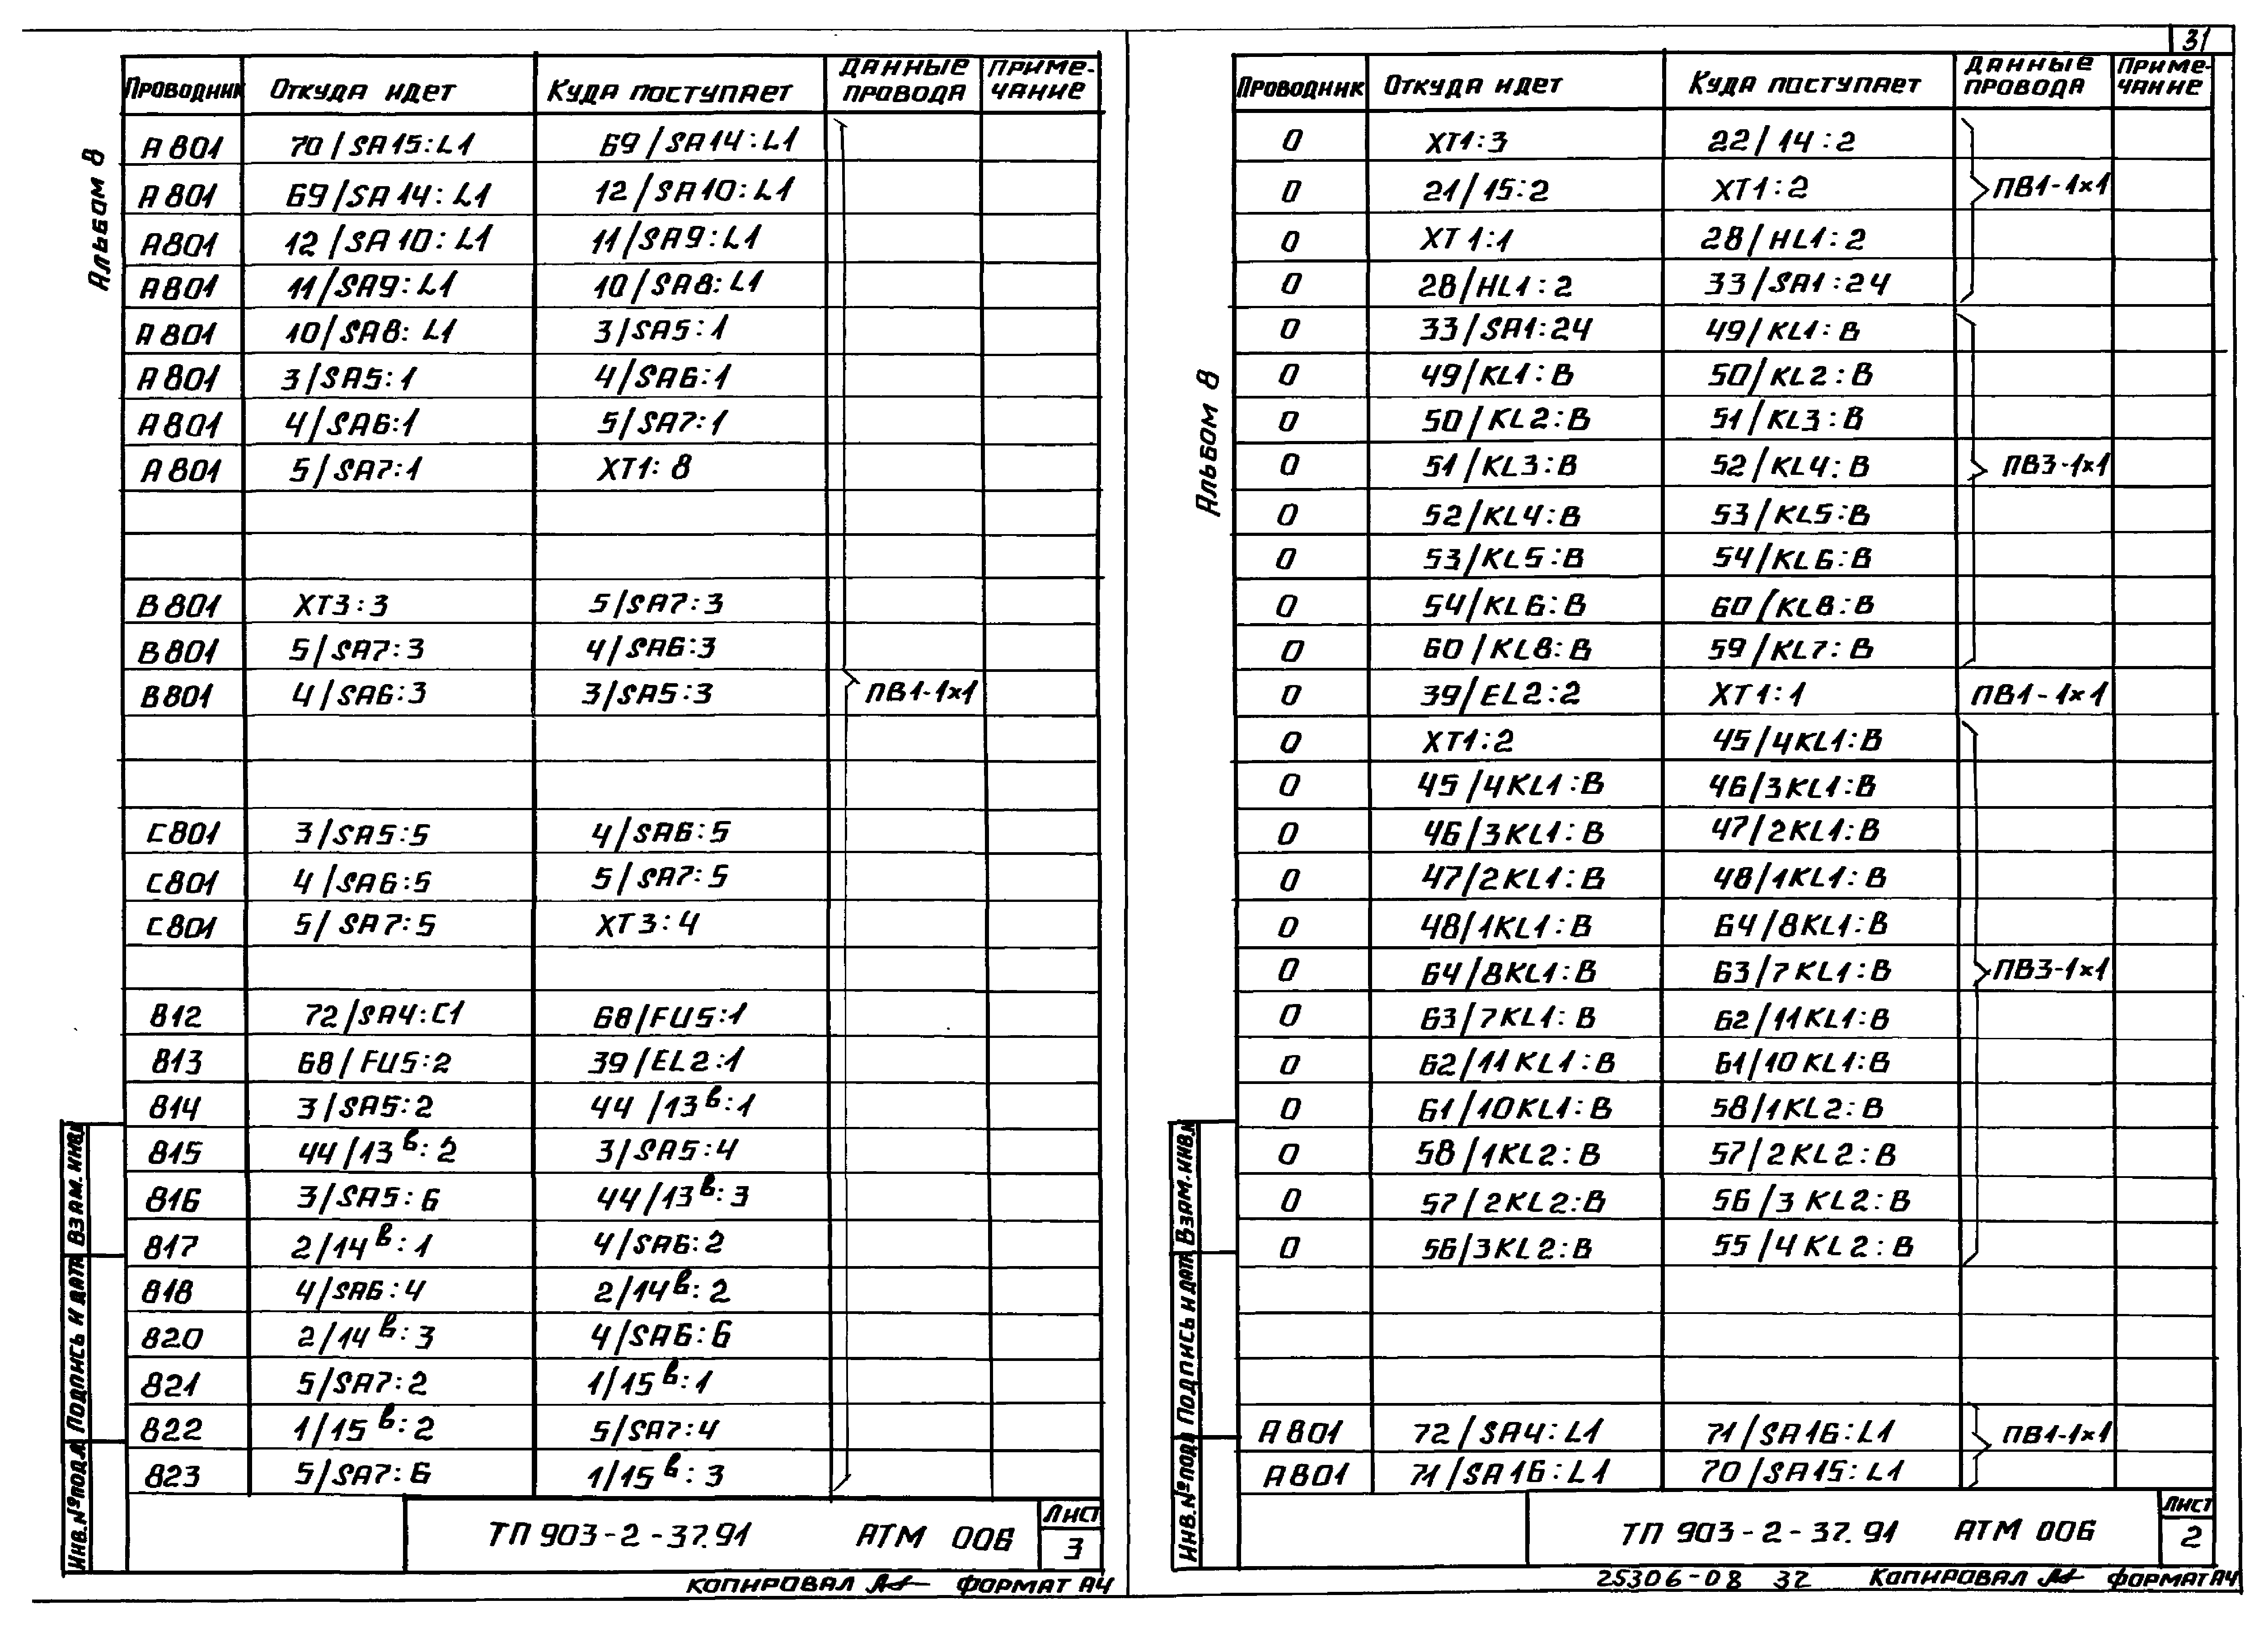 Альбом 8
Проводник Откуда идет Куда поступает Данные провода Примечание
А801 70/SA15:L1 69/SA14:L1
А801 69/SA14:L1 12/SA10:L1
А801 12/SA10:L1 11/SA9:L1
А801 11/SA9:L1 10/SA8:L1
А801 10/SA8:L1 3/SA5:1
А801 3/SA5:1 4/SA6:1
А801 4/SA6:1 5/SA7:1
А801 5/SA7:1 XT1:8
В801 XT3:3 5/SA7:3
В801 5/SA7:3 4/SA6:3
В801 4/SA6:3 3/SA5:3 ПВ1-1×1
С801 3/SA5:5 4/SA6:5
С801 4/SA6:5 5/SA7:5
С801 5/SA7:5 XT3:4
812 72/SA4:C1 68/FU5:1
813 68/FU5:2 39/EL2:1
814 3/SA5:2 44/13в:1
815 44/13в:2 3/SA5:4
816 3/SA5:6 44/13в:3
817 2/14в:1 4/SA6:2
818 4/SA6:4 2/14в:2
820 2/14в:3 4/SA6:6
821 5/SA7:2 1/15в:1
822 1/15в:2 5/SA7:4
823 5/SA7:6 1/15в:3
Инв.№подл. Подпись и дата Взам.инв.
ТП 903-2-37.91 АТМ 006 Лист 3
Копировал Формат А4
31
Альбом 8
Проводник Откуда идет Куда поступает Данные провода Примечание
0 XT1:3 22/14:2
0 21/15:2 XT1:2 ПВ1-1×1
0 XT1:1 28/HL1:2
0 28/HL1:2 33/SA1:24
0 33/SA1:24 49/KL1:B
0 49/KL1:B 50/KL2:B
0 50/KL2:B 51/KL3:B
0 51/KL3:B 52/KL4:B ПВ3-1×1
0 52/KL4:B 53/KL5:B
0 53/KL5:B 54/KL6:B
0 54/KL6:B 60/KL8:B
0 60/KL8:B 59/KL7:B
0 39/EL2:2 XT1:1 ПВ1-1×1
0 XT1:2 45/4KL1:B
0 45/4KL1:B 46/3KL1:B
0 46/3KL1:B 47/2KL1:B
0 47/2KL1:B 48/1KL1:B
0 48/1KL1:B 64/8KL1:B
0 64/8KL1:B 63/7KL1:B ПВ3-1×1
0 63/7KL1:B 62/11KL1:B
0 62/11KL1:B 61/10KL1:B
0 61/10KL1:B 58/1KL2:B
0 58/1KL2:B 57/2KL2:B
0 57/2KL2:B 56/3KL2:B
0 56/3KL2:B 55/4KL2:B
А801 72/SA4:L1 71/SA16:L1 ПВ1-1×1
А801 71/SA16:L1 70/SA15:L1
Инв.№подл Подпись и дата Взам.инв.
ТП 903-2-37.91 АТМ 006 Лист 2
25306-08 32 Копировал Формат А4